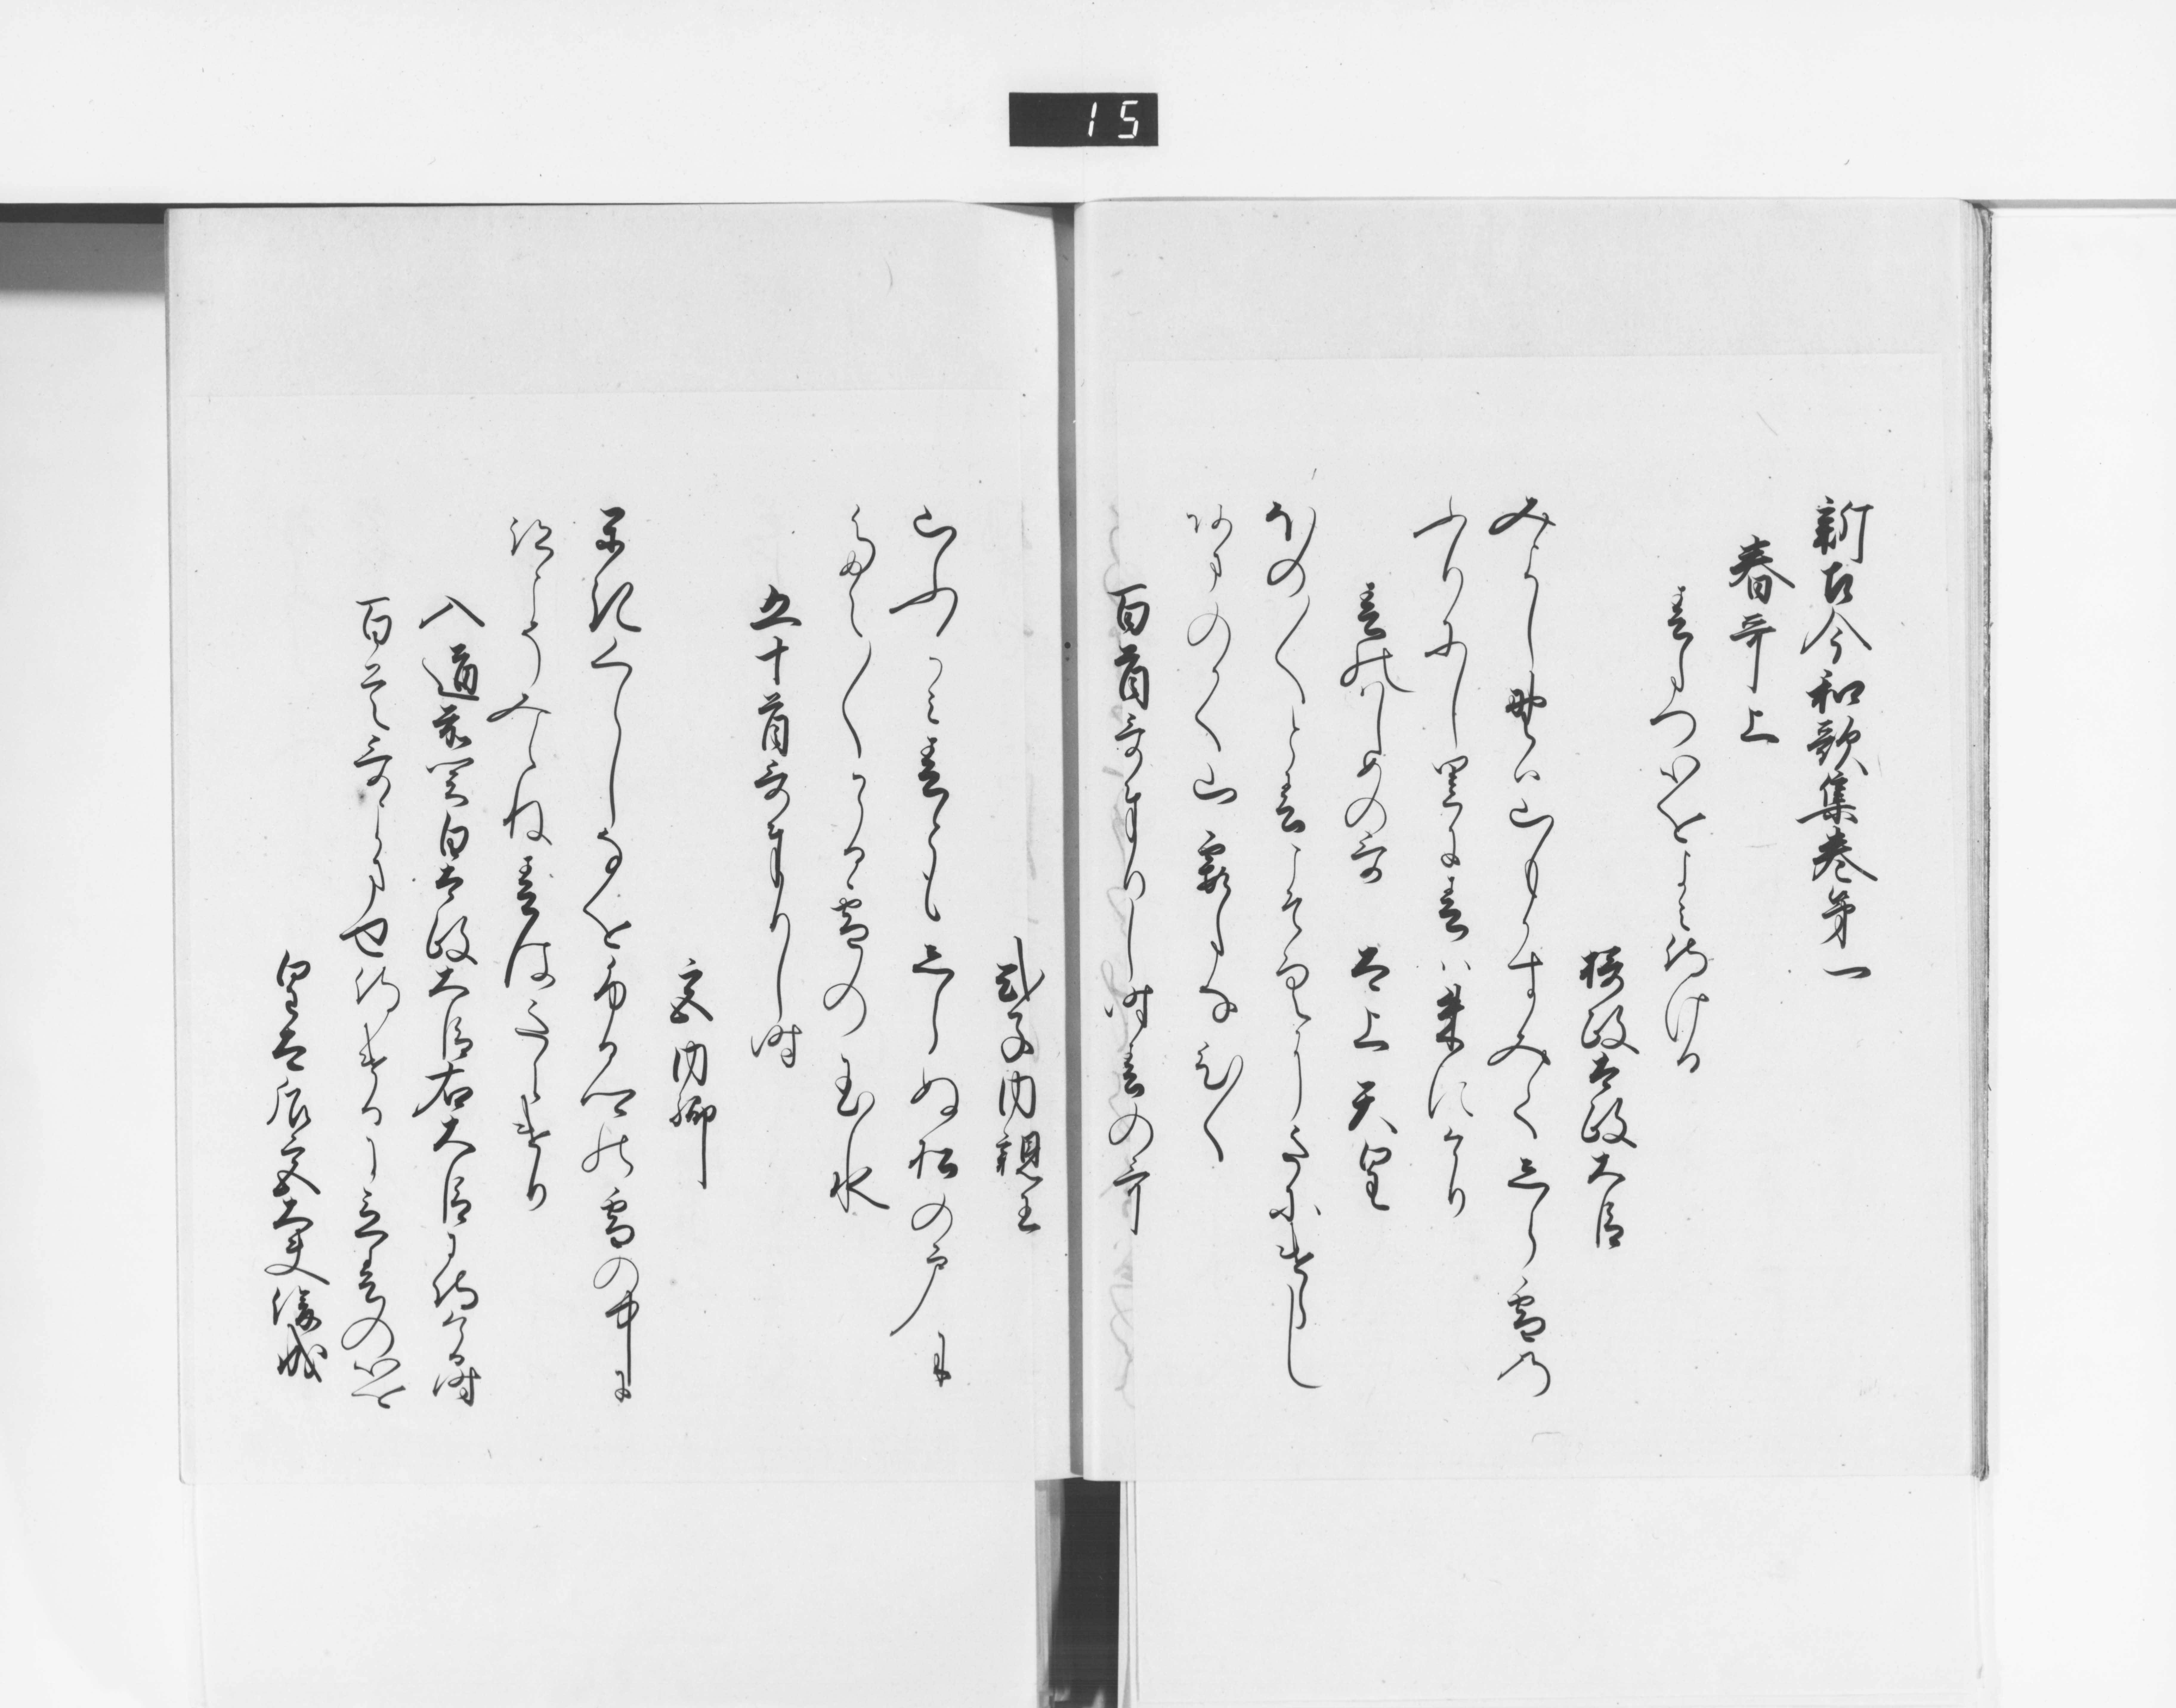 15
新古今和歌集巻第一
春哥上
春たつ心をよみ侍ける
摂政太政大臣
みよし野は山もかすみてしら雪の
ふりにし里に春は来にけり
春のはしめの哥　太上天皇
ほの〱と春こそ空にきにけらし
あまのかく山霞たなひく
百首哥奉りし時春の哥
式子内親王
山ふかみ春ともしらぬ松の戸に
たえ〱かゝる雪の玉水
五十首哥奉りし時
宮内卿
かきくらしなを布る里の雪の中に
跡こそみえね春はきにけり
入道前関白太政大臣右大臣に侍ける時
百首哥よませ侍けるに立春の心を
皇太后宮大夫俊成